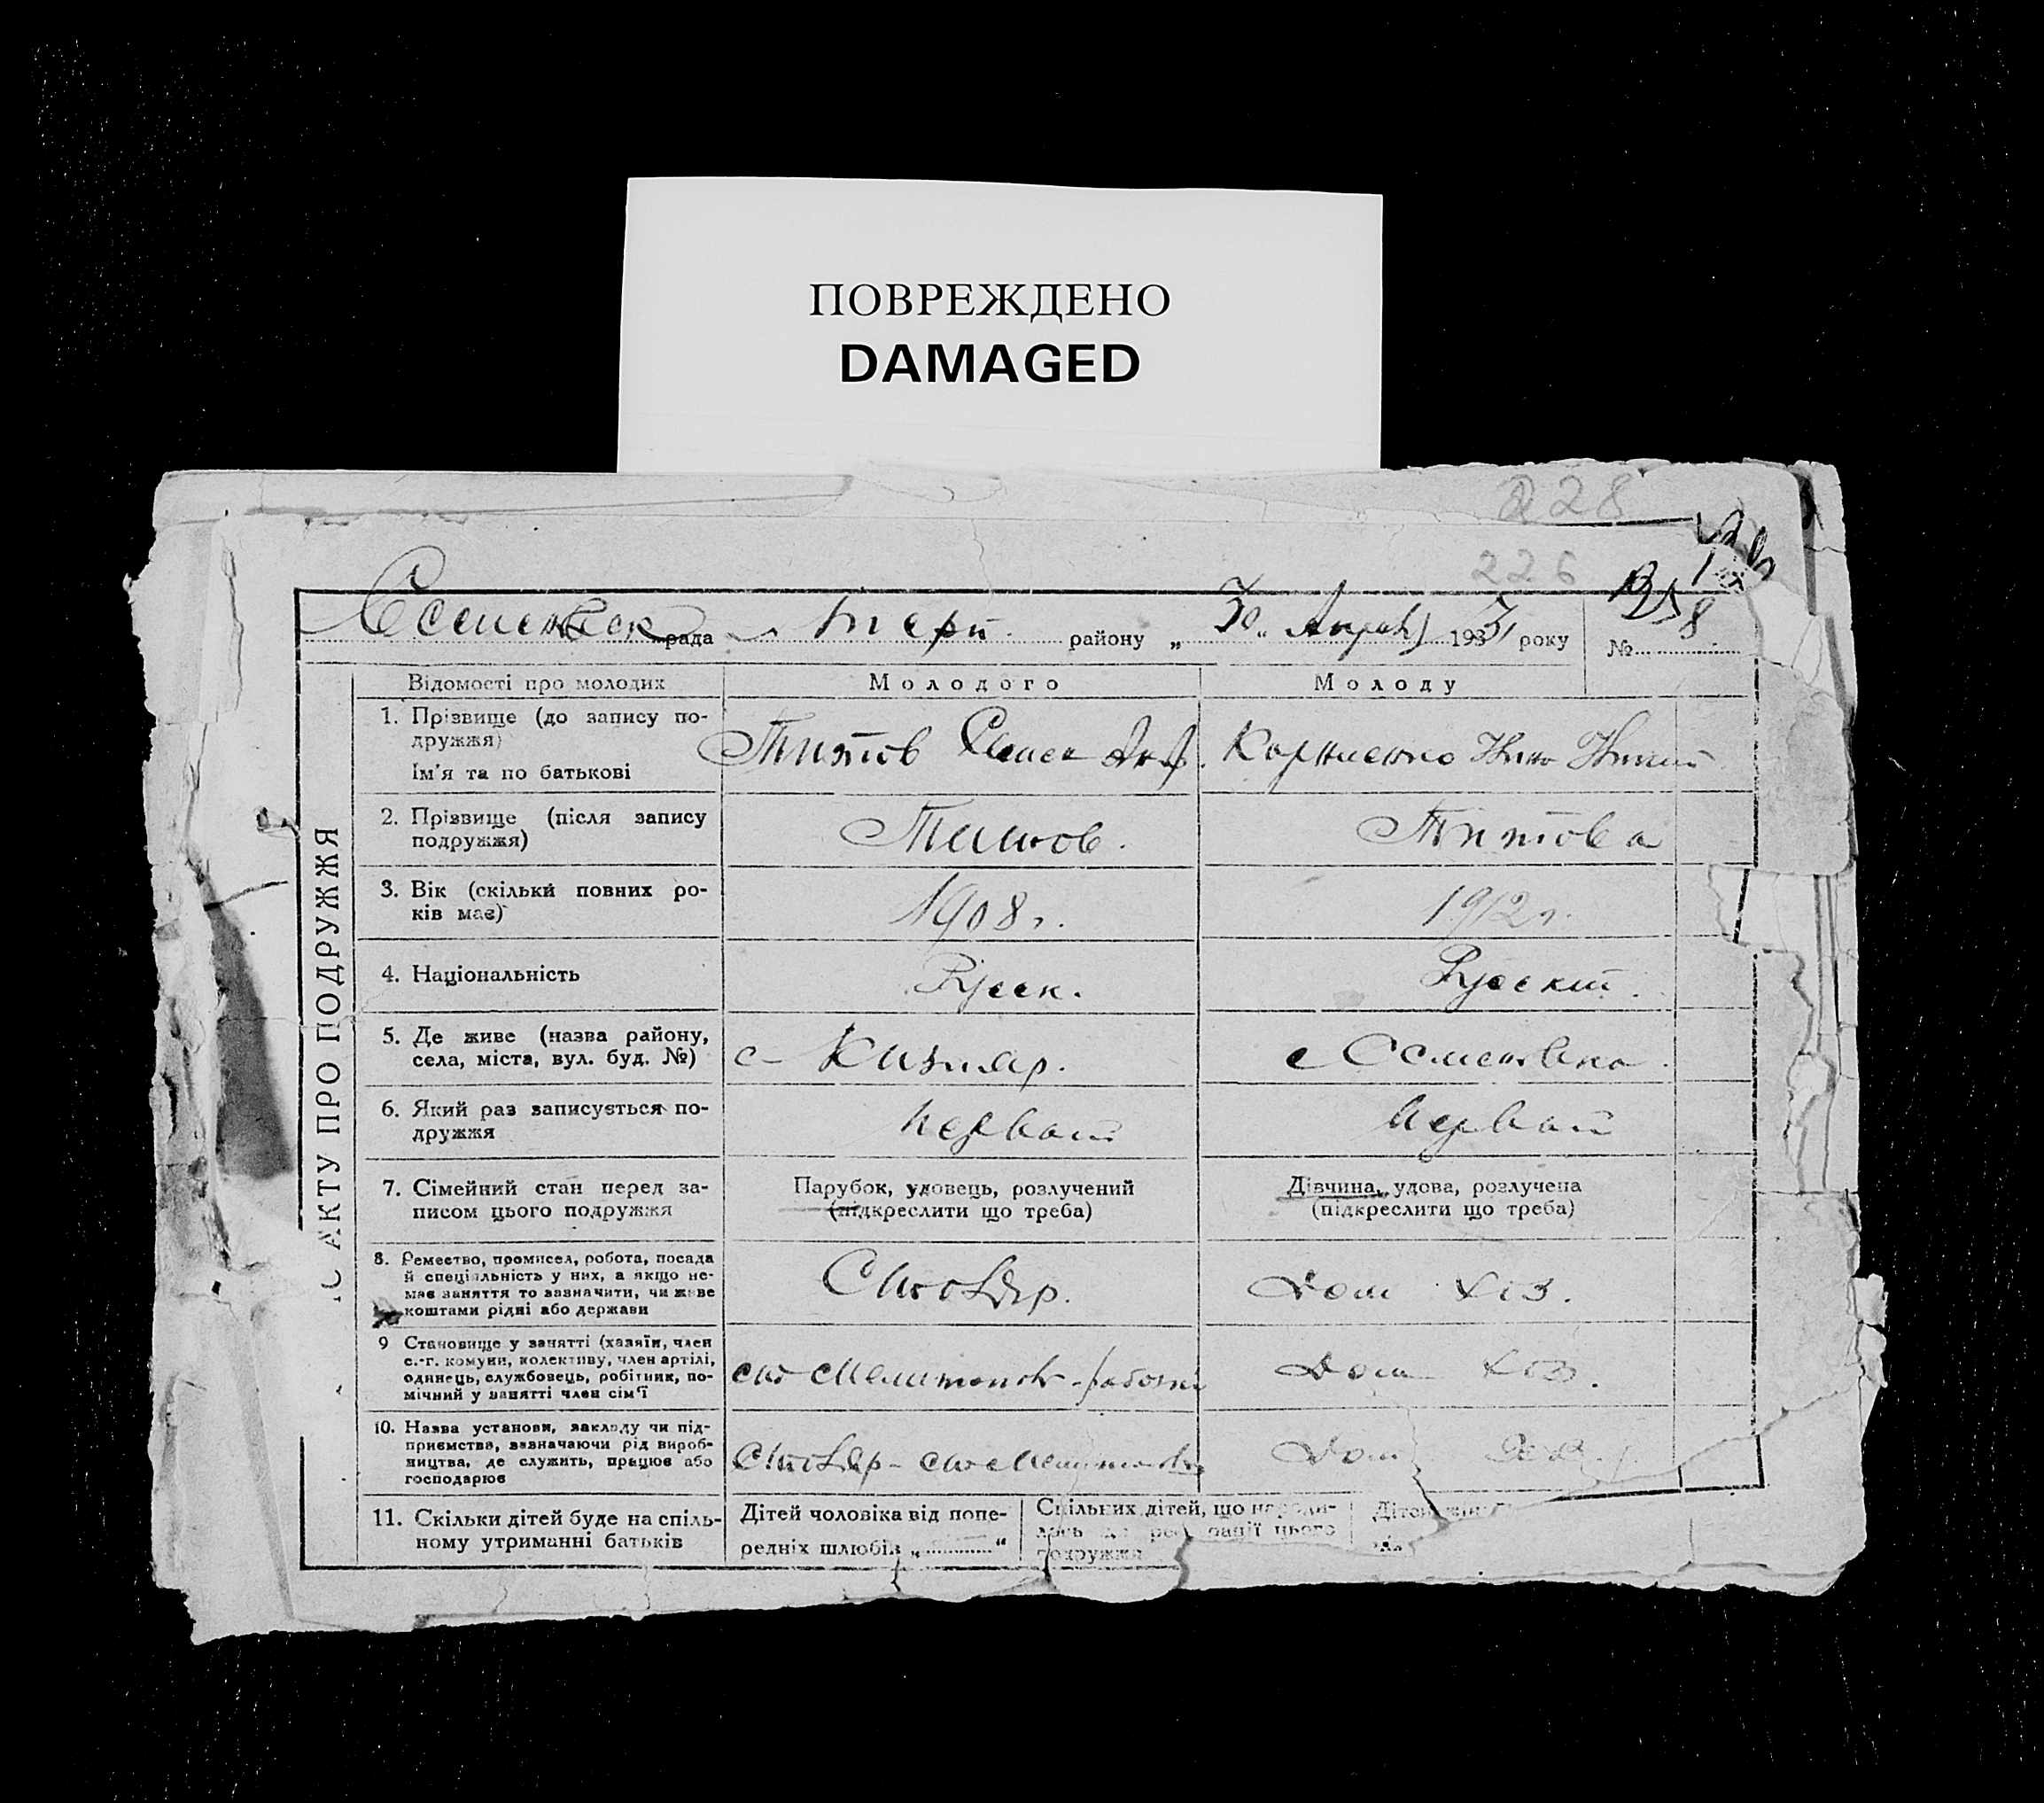 ПОВРЕЖДЕНО
DAMAGED
228
226
рада району „ 30 „ 193 року № 8
АКТУ ПРО ПОДРУЖЖЯ
Відомості про молодих Молодого Молоду
1. Прізвище (до запису по-
дружжя)
Ім'я та по батькові
Титов Семен Корниенко Нина
2. Прізвище (після запису
подружжя)
Титов. Титова
3. Вік (скільки повних ро-
ків має)
1908 г. 1912 г.
4. Національність
Русск. Русский.
5. Де живе (назва району,
села, міста, вул. буд. №)
с- Кизияр. с Семеновка.
6. Який раз записується по-
дружжя
первый первый
7. Сімейний стан перед за-
писом цього подружжя
Парубок, удовець, розлучений
(підкреслити що треба)
Дівчина, удова, розлучена
(підкреслити що треба)
8. Ремество, промисел, робота, посада
й спеціяльність у них, а якщо не-
має заняття то зазначити, чи живе
коштами рідні або держави
Столяр. Дом хоз.
9 Становище у занятті (хазяїн, член
с.-г. комуни, колективу, член артілі,
одинець, службовець, робітник, по-
мічний у занятті член сім'ї
ст Мелитополь - рабочий Дом хоз.
10. Назва установи, закладу чи під-
приємства, зазначаючи рід вироб-
ництва, де служить, працює або
господарює
Столяр - ст Мелитополь Дом
11. Скільки дітей буде на спіль-
ному утриманні батьків
Дітей чоловіка від попе-
редніх шлюбів „ “
Спільних дітей, що народи-
лись до цього
подружжя
Дітей